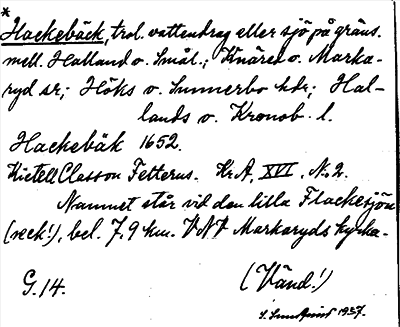 *
Hackebäck, trol. vattendrag eller sjö på gräns.
mell. Halland o. Smål.; Knäred o. Marka-
ryd sr; Höks o. Sunnerbo hdr; Hal-
lands o. Kronob. l.
Hackebäk 1652.
Kietell Classon Felterus. Kr.A, XVI, No. 2.
Namnet står vid den lilla Flackesjön
(seck!), bel. 7,9 km. VNV Markaryds kyrka.
G. 14.
(Vänd!)
S. Lundqvist 1937.